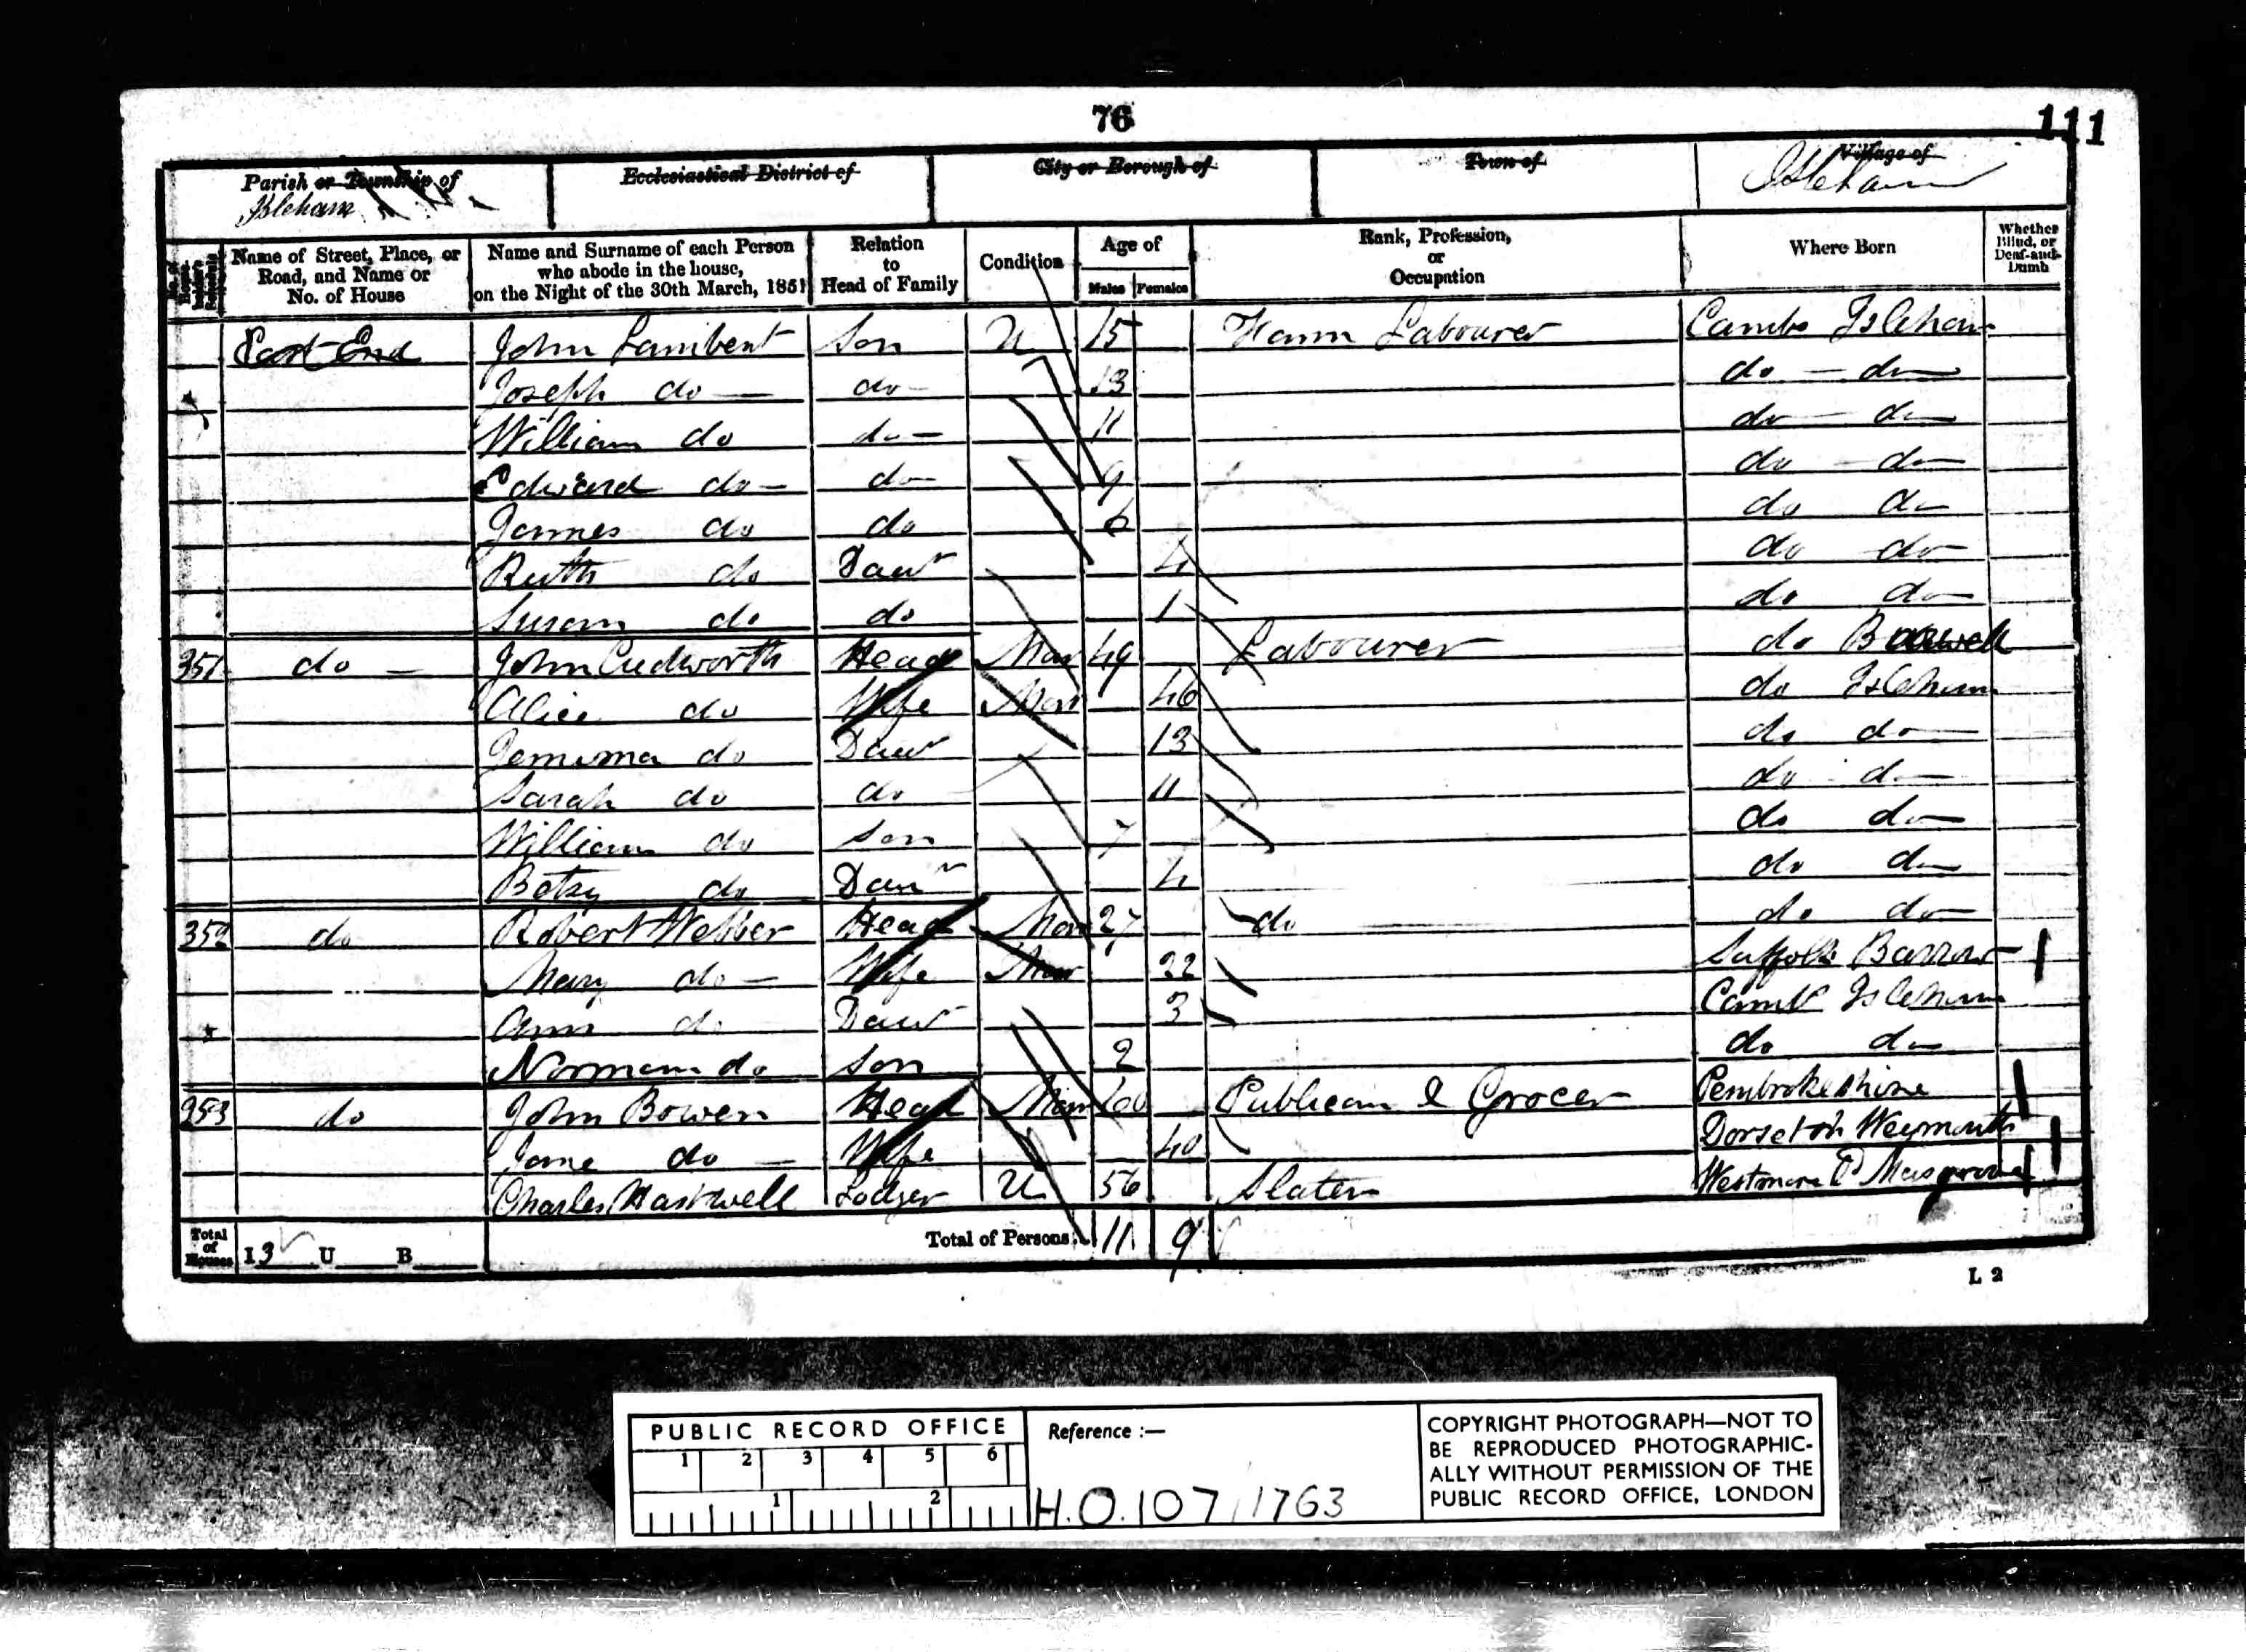 76
111
Parish or Township of
Isleham
Ecclesiastical District of
City or Borough of
Town of
Village of
Isleham
Name of Street, Place, or Road, and Name or No. of House
Name and Surname of each Person who abode in the house, on the Night of the 30th March, 1851
Relation to Head of Family
Condition
Age of
Males Females
Rank, Profession, or Occupation
Where Born
Whether Blind, or Deaf-and-Dumb
East End John Lambert Son U 15 Farm Labourer Cambs Isleham
Joseph do do 13 do do
William do do 11 do do
Edward do do 9 do do
James do do 6 do do
Ruth do Daur 4 do do
Susan do do 1 do do
351 do John Cudworth Head Mar 49 Labourer do
Alice do Wife Mar 46 do Isleham
Jemima do Daur 13 do do
Sarah do do 11 do do
William do Son 7 do do
Betsy do Daur 4 do do
352 do Robert Webber Head Mar 27 do do do
Mary do Wife Mar 22 Suffolk Barrow
Ann do Daur 3 Camb Isleham
Norman do Son 2 do do
353 do John Bowen Head Mar 60 Publican & Grocer Pembrokeshire
Jane do Wife 40 Weymouth
Charles Hartwell Lodger U 56 Slater
Total of Houses I 3 U B Total of Persons 11 9
L 2
PUBLIC RECORD OFFICE
1 2 3 4 5 6
1 2
Reference :—
H.O. 107/1763
COPYRIGHT PHOTOGRAPH—NOT TO
BE REPRODUCED PHOTOGRAPHIC-
ALLY WITHOUT PERMISSION OF THE
PUBLIC RECORD OFFICE, LONDON